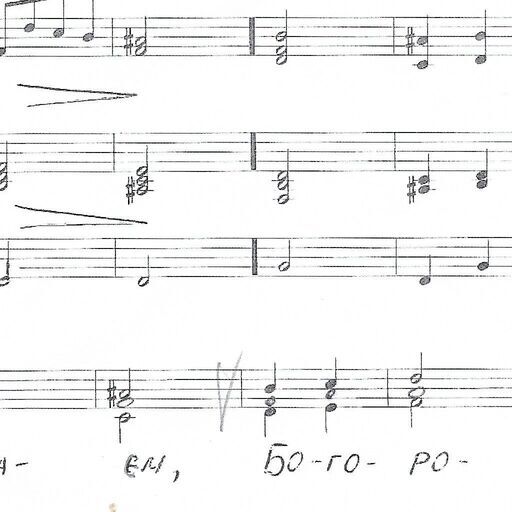 А- ЕМ, БО-ГО- РО-